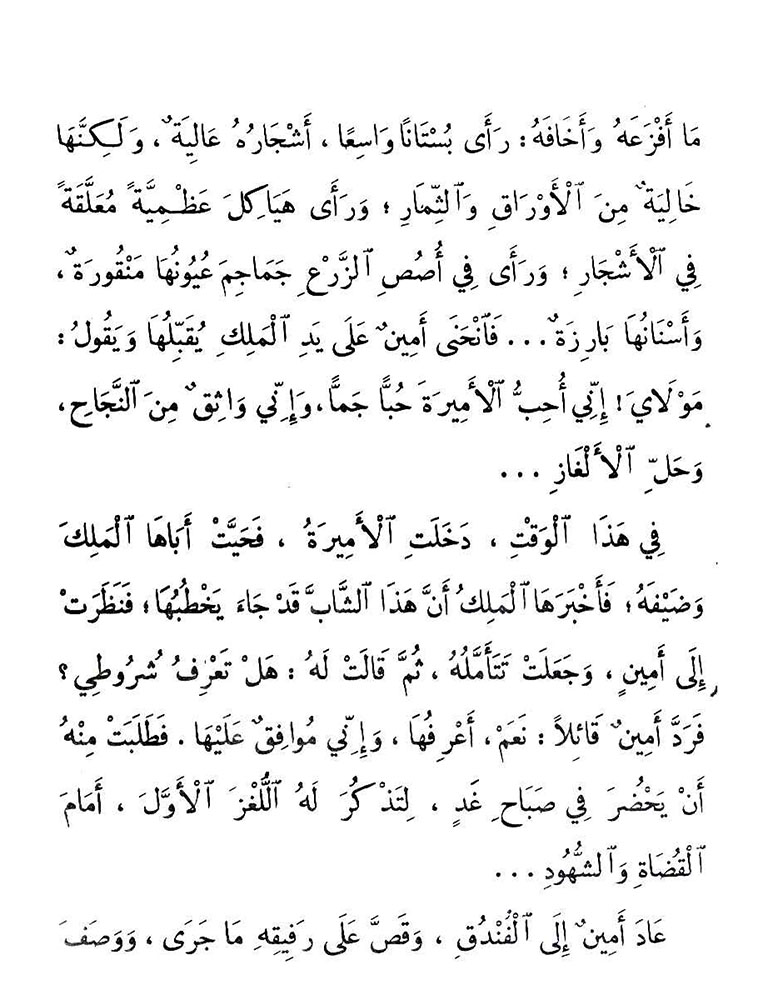 مَا أَفْزَعَهُ وَأَخَافَهُ: رَأَى بُسْتَانًا وَاسِعًا، أَشْجَارُهُ عَالِيَةٌ، وَلَكِنَّهَا
خَالِيَةٌ مِنَ ٱلْأَوْرَاقِ وَٱلثِّمَارِ؛ وَرَأَى هَيَاكِلَ عَظْمِيَّةً مُعَلَّقَةً
فِي ٱلْأَشْجَارِ؛ وَرَأَى فِي أُصُصِ ٱلزَّرْعِ جَمَاجِمَ عُيُونُهَا مَنْقُورَةٌ،
وَأَسْنَانُهَا بَارِزَةٌ... فَٱنْحَنَى أَمِينٌ عَلَى يَدِ ٱلْمَلِكِ يُقَبِّلُهَا وَيَقُولُ:
مَوْلَايَ! إِنِّي أُحِبُّ ٱلْأَمِيرَةَ حُبًّا جَمًّا، وَإِنِّي وَاثِقٌ مِنَ ٱلنَّجَاحِ،
وَحَلِّ ٱلْأَلْغَازِ...
فِي هَذَا ٱلْوَقْتِ، دَخَلَتِ ٱلْأَمِيرَةُ، فَحَيَّتْ أَبَاهَا ٱلْمَلِكَ
وَضَيْفَهُ؛ فَأَخْبَرَهَا ٱلْمَلِكُ أَنَّ هَذَا ٱلشَّابَّ قَدْ جَاءَ يَخْطُبُهَا؛ فَنَظَرَتْ
إِلَى أَمِينٍ، وَجَعَلَتْ تَتَأَمَّلُهُ، ثُمَّ قَالَتْ لَهُ: هَلْ تَعْرِفُ شُرُوطِي؟
فَرَدَّ أَمِينٌ قَائِلاً: نَعَمْ، أَعْرِفُهَا، وَإِنِّي مُوَافِقٌ عَلَيْهَا. فَطَلَبَتْ مِنْهُ
أَنْ يَحْضُرَ فِي صَبَاحِ غَدٍ، لِتَذْكُرَ لَهُ ٱللُّغْزَ ٱلْأَوَّلَ، أَمَامَ
ٱلْقُضَاةِ وَٱلشُّهُودِ...
عَادَ أَمِينٌ إِلَى ٱلْفُنْدُقِ، وَقَصَّ عَلَى رَفِيقِهِ مَا جَرَى، وَوَصَفَ